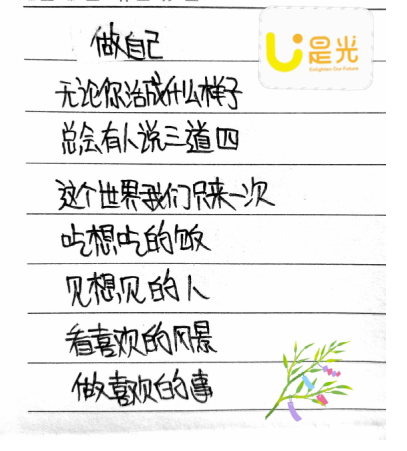 做自己
是光
Enlighten Our Future
无论你活成什么样子
总会有人说三道四
这个世界我们只来一次
吃想吃的饭
见想见的人
看喜欢的风景
做喜欢的事